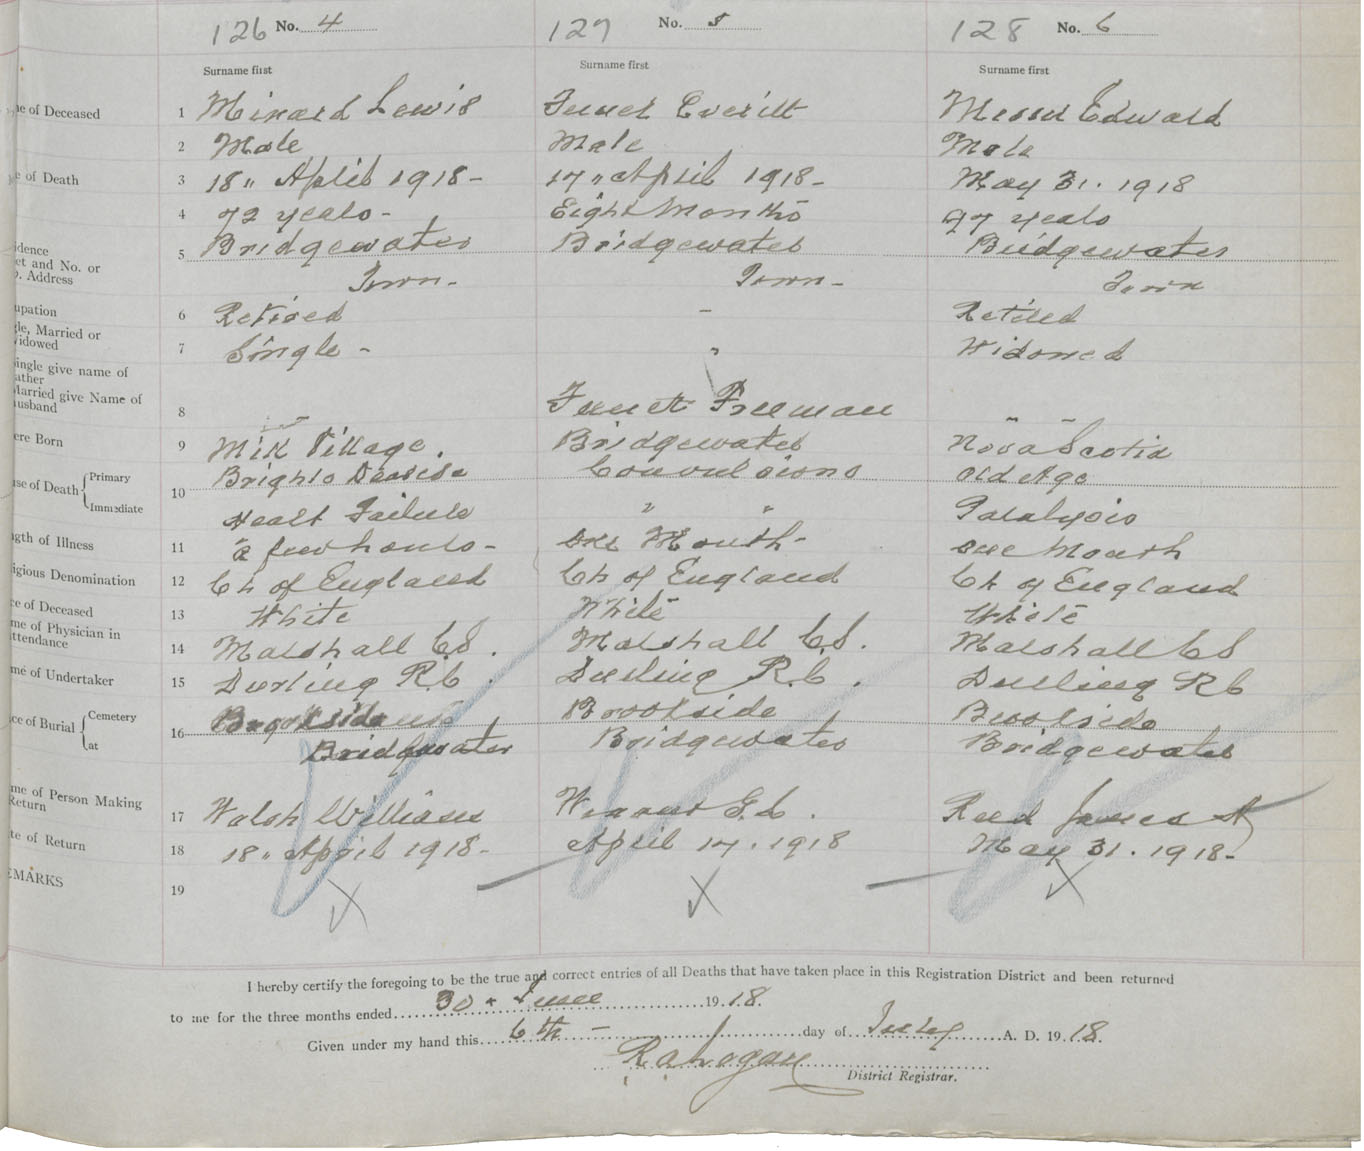 126 No. 4
127 No. 5
128 No. 6
Surname first
Surname first
Surname first
ne of Deceased 1 Minard Lewis
Everitt
Edward
2 Male
Male
Male
e of Death 3 18" April 1918-
17" April 1918-
May 31. 1918
4 72 years-
Eight Months
97 years
idence
et and No. or
. Address
5 Bridgewater
Bridgewater
Bridgewater
Town-
Town-
Town
upation 6 Retired
-
Retired
gle, Married or
Widowed
7 Single -
"
Widowed
ingle give name of
ather
Married give Name of
usband
8
Freeman
" "
ere Born 9 Mill Village.
Bridgewater
Nova Scotia
se of Death { Primary
Immediate
10 Brights Disease
Convulsions
Old Age
Heart Failure
" "
Paralysis
gth of Illness 11 a few hours-
one Month-
one Month
igious Denomination 12 Ch of England
Ch of England
Ch of England
ce of Deceased 13 White
White
White
me of Physician in
ttendance
14 Marshall C S.
Marshall C.S.
Marshall C S
me of Undertaker 15 Durling R.C.
Durling R.C.
Durling R C
ce of Burial { Cemetery
at
16 Brookside
Brookside
Brookside
Bridgewater
Bridgewater
Bridgewater
me of Person Making
Return
17 Walsh William
G.L.
Reed James A
te of Return 18 18" April 1918-
April 17. 1918
May 31. 1918-
EMARKS 19 X
X
X
I hereby certify the foregoing to be the true and correct entries of all Deaths that have taken place in this Registration District and been returned
to me for the three months ended 30 June 1918.
Given under my hand this 6th - day of July A. D. 1918.
District Registrar.